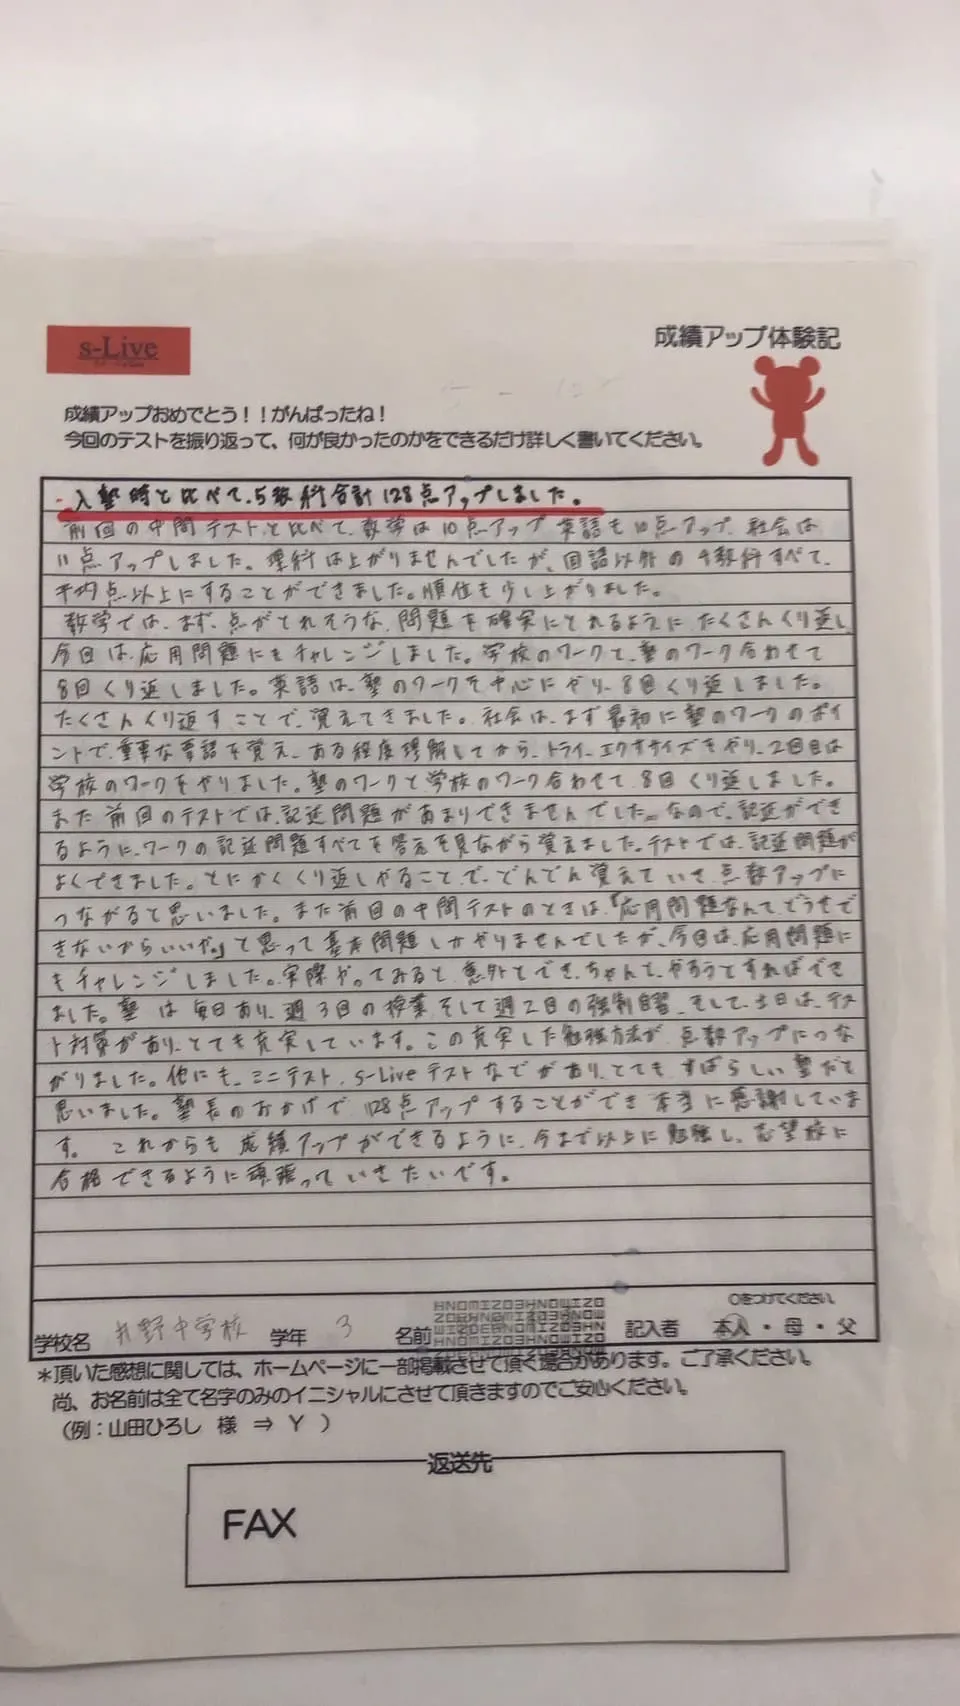 s-Live
成績アップ体験記
成績アップおめでとう！！がんばったね！
今回のテストを振り返って、何が良かったのかをできるだけ詳しく書いてください。
入塾時と比べて、5教科合計128点アップしました。
前回の中間テストと比べて、数学は10点アップ 英語も10点アップ、社会は
11点アップしました。理科は上がりませんでしたが、国語以外の4教科すべて、
平均点以上にすることができました。順位も少し上がりました。
数学では、まず、点がとれそうな、問題を確実にとれるように、たくさんくり返し、
今回は、応用問題にもチャレンジしました。学校のワークと、塾のワーク合わせて
8回くり返しました。英語は、塾のワークを中心にやり、8回くり返しました。
たくさんくり返すことで、覚えてきました。社会は、まず最初に塾のワークのポイ
ントで、重要な要語を覚え、ある程度理解してから、トライ、エクササイズをやり、2回目は
学校のワークをやりました。塾のワークと学校のワーク合わせて、8回くり返しました。
また前回のテストでは、記述問題があまりできませんでした。なので、記述ができ
るように、ワークの記述問題すべてを答えを見ながら覚えました。テストでは、記述問題が
よくできました。とにかくくり返しやることで、どんどん覚えていき、点数アップに
つながると思いました。また前回の中間テストのときは、「応用問題なんて、どうせで
きないからいいや。」と思って基本問題しかやりませんでしたが、今回は、応用問題に
もチャレンジしました。実際やってみると、意外とでき、ちゃんと、やろうとすればでき
ました。塾は毎日あり、週3回の授業、そして週2回の強制自習、そして、土日は、テス
ト対策があり、とても充実しています。この充実した勉強方法が、点数アップにつな
がりました。他にも、ミニテスト、s-Liveテストなどがあり、とても、すばらしい塾だと
思いました。塾長のおかげで128点アップすることができ本当に感謝していま
す。これからも成績アップができるように、今まで以上に勉強し、志望校に
合格できるように頑張っていきたいです。
○をつけてください。
学校名 井野中学校 学年 3 名前 記入者 本人・母・父
＊頂いた感想に関しては、ホームページに一部掲載させて頂く場合があります。ご了承ください。
尚、お名前は全て名字のみのイニシャルにさせて頂きますのでご安心ください。
（例：山田ひろし 様 ⇒ Y ）
返送先
FAX